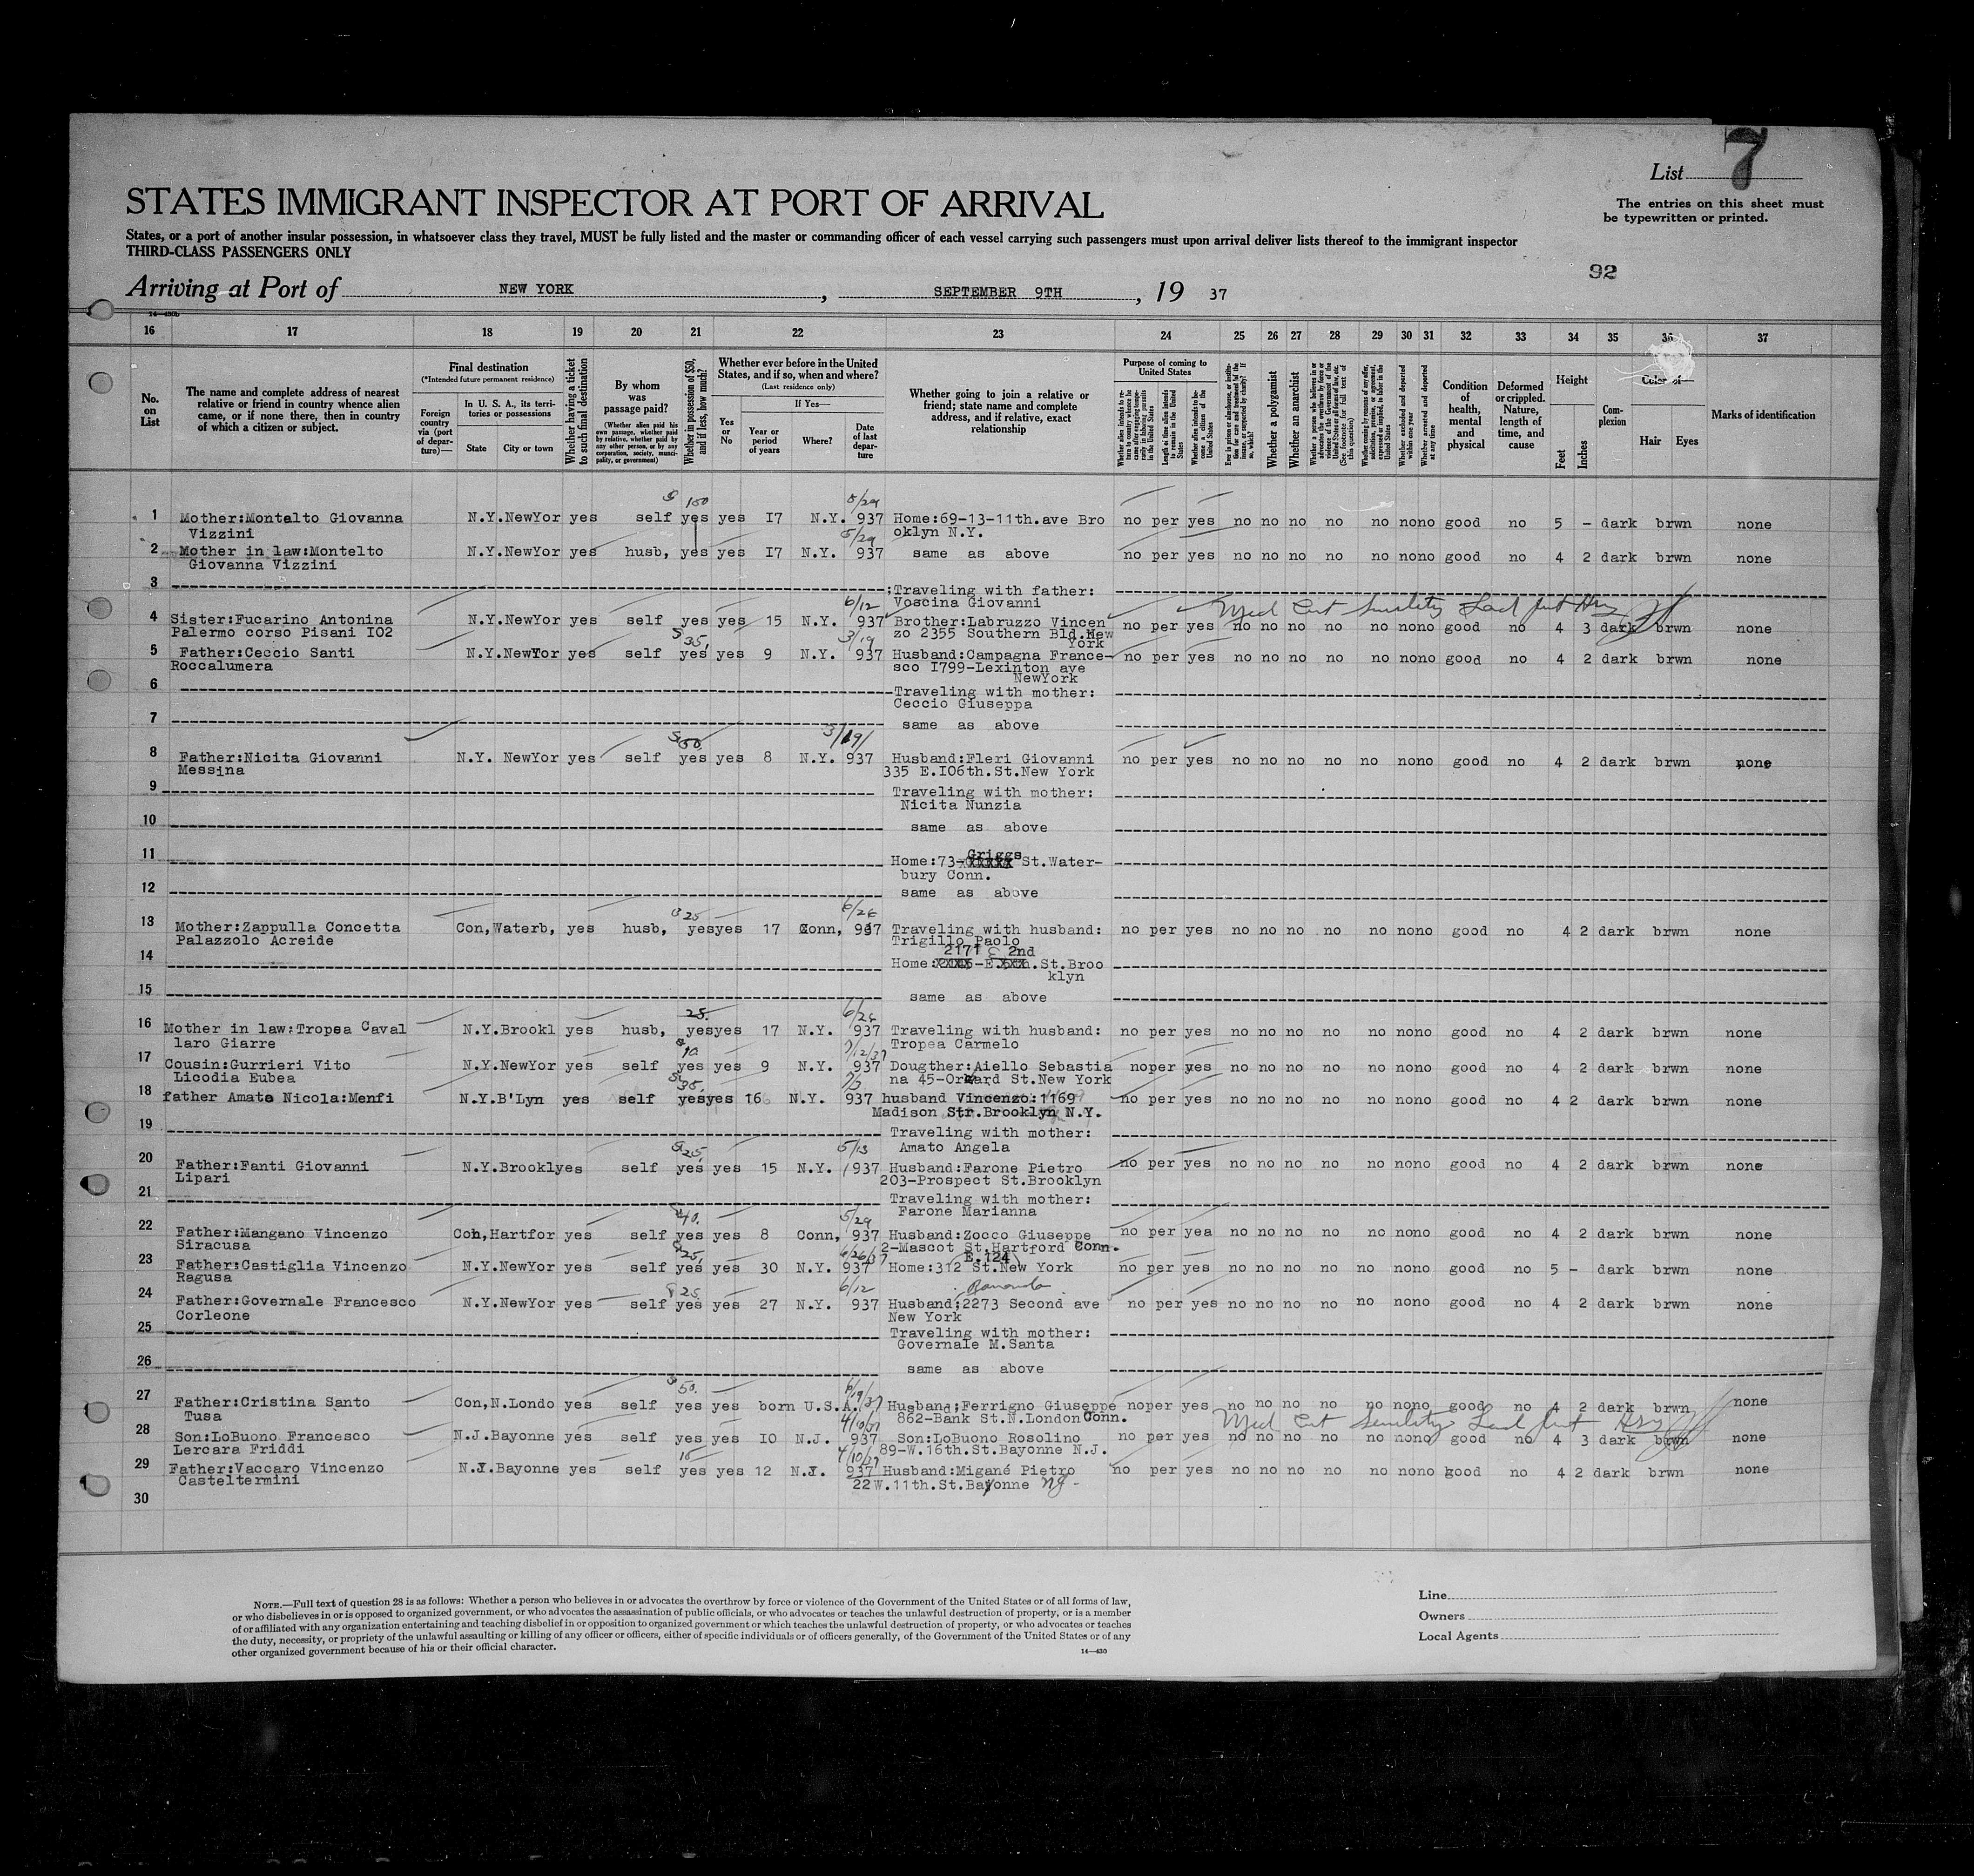 List 7
STATES IMMIGRANT INSPECTOR AT PORT OF ARRIVAL
The entries on this sheet must
be typewritten or printed.
States, or a port of another insular possession, in whatsoever class they travel, MUST be fully listed and the master or commanding officer of each vessel carrying such passengers must upon arrival deliver lists thereof to the immigrant inspector
THIRD-CLASS PASSENGERS ONLY
92
Arriving at Port of NEW YORK, SEPTEMBER 9TH, 19 37
16 17 18 19 20 21 22 23 24 25 26 27 28 29 30 31 32 33 34 35 36 37
No. on List
The name and complete address of nearest relative or friend in country whence alien came, or if none there, then in country of which a citizen or subject.
Final destination
(*Intended future permanent residence)
Foreign country via (port of departure)—
In U. S. A., its territories or possessions
State City or town
Whether having a ticket to such final destination
By whom was passage paid?
(Whether alien paid his own passage, whether paid by relative, whether paid by any other person, or by any corporation, society, municipality, or government)
Whether in possession of $50, and if less, how much?
Whether ever before in the United States, and if so, when and where?
(Last residence only)
Yes or No
If Yes—
Year or period of years
Where?
Date of last departure
Whether going to join a relative or friend; state name and complete address, and if relative, exact relationship
Purpose of coming to United States
Whether a polygamist
Whether an anarchist
Condition of health, mental and physical
Deformed or crippled. Nature, length of time, and cause
Height
Feet Inches
Complexion
Color of—
Hair Eyes
Marks of identification
1 Mother:Montalto Giovanna N.Y.NewYor yes self yes yes I7 N.Y. 937 Home:69-13-11th.ave Bro no per yes no no no no no nono good no 5 - dark brwn none
Vizzini oklyn N.Y.
2 Mother in law:Montelto N.Y.NewYor yes husb, yes yes I7 N.Y. 937 same as above no per yes no no no no no nono good no 4 2 dark brwn none
Giovanna Vizzini
3 :Traveling with father:
Voscina Giovanni
4 Sister:Fucarino Antonina N.Y.NewYor yes self yes yes 15 N.Y. 937 Brother:Labruzzo Vincen no per yes no no no no no nono good no 4 3 dark brwn none
Palermo corso Pisani IO2 zo 2355 Southern Bld.New
York
5 Father:Ceccio Santi N.Y.NewYor yes self yes yes 9 N.Y. 937 Husband:Campagna France- no per yes no no no no no nono good no 4 2 dark brwn none
Roccalumera sco I799-Lexinton ave
NewYork
6 Traveling with mother:
Ceccio Giuseppa
7 same as above
8 Father:Nicita Giovanni N.Y. NewYor yes self yes yes 8 N.Y. 937 Husband:Fleri Giovanni no per yes no no no no no nono good no 4 2 dark brwn none
Messina 335 E.IO6th.St.New York
9 Traveling with mother:
Nicita Nunzia
10 same as above
11 Griggs
Home:73- St.Water-
bury Conn.
12 same as above
13 Mother:Zappulla Concetta Con,Waterb, yes husb, yesyes 17 Conn, 937 Traveling with husband: no per yes no no no no no nono good no 4 2 dark brwn none
Palazzolo Acreide Trigillo Paolo
14 2171 E 2nd
Home: St.Broo
klyn
15 same as above
16 Mother in law:Tropea Caval N.Y.Brookl yes husb, yesyes 17 N.Y. 937 Traveling with husband: no per yes no no no no no nono good no 4 2 dark brwn none
laro Giarre Tropea Carmelo
17 Cousin:Gurrieri Vito N.Y.NewYor yes self yes yes 9 N.Y. 937 Dougther:Aiello Sebastia noper yes no no no no no nono good no 4 2 dark brwn none
Licodia Eubea na 45- St.New York
18 father Amato Nicola:Menfi N.Y.B'Lyn yes self yesyes 16 N.Y. 937 husband Vincenzo:1169 no per yes no no no no no nono good no 4 2 dark brwn none
Madison Str.Brooklyn N.Y.
19 Traveling with mother:
Amato Angela
20 Father:Fanti Giovanni N.Y.Brooklyes self yes yes 15 N.Y. 937 Husband:Farone Pietro no per yes no no no no no nono good no 4 2 dark brwn none
Lipari 203-Prospect St.Brooklyn
21 Traveling with mother:
Farone Marianna
22 Father:Mangano Vincenzo Con,Hartfor yes self yes yes 8 Conn, 937 Husband:Zocco Giuseppe no per yea no no no no no nono good no 4 2 dark brwn none
Siracusa 2-Mascot St.Hartford Conn.
23 Father:Castiglia Vincenzo N.Y.NewYor yes self yes yes 30 N.Y. 937 Home:312 E.124 St.New York no per yes no no no no no nono good no 5 - dark brwn none
Ragusa
24 Father:Governale Francesco N.Y.NewYor yes self yes yes 27 N.Y. 937 Husband:2273 Second ave no per yes no no no no no nono good no 4 2 dark brwn none
Corleone New York
25 Traveling with mother:
Governale M.Santa
26 same as above
27 Father:Cristina Santo Con,N.Londo yes self yes yes born U.S.A. Husband:Ferrigno Giuseppe noper yes no no no no no nono good no 4 2 dark brwn none
Tusa 862-Bank St.N.London Conn.
28 Son:LoBuono Francesco N.J.Bayonne yes self yes yes IO N.J. 937 Son:LoBuono Rosolino no per yes no no no no no nono good no 4 3 dark brwn none
Lercara Friddi 89-W.16th.St.Bayonne N.J.
29 Father:Vaccaro Vincenzo N.J.Bayonne yes self yes yes 12 N.J. 937 Husband:Migané Pietro no per yes no no no no no nono good no 4 2 dark brwn none
Casteltermini 22W.11th.St.Bayonne
30
NOTE.—Full text of question 28 is as follows: Whether a person who believes in or advocates the overthrow by force or violence of the Government of the United States or of all forms of law,
or who disbelieves in or is opposed to organized government, or who advocates the assassination of public officials, or who advocates or teaches the unlawful destruction of property, or is a member
of or affiliated with any organization entertaining and teaching disbelief in or opposition to organized government or which teaches the unlawful destruction of property, or who advocates or teaches
the duty, necessity, or propriety of the unlawful assaulting or killing of any officer or officers, either of specific individuals or of officers generally, of the Government of the United States or of any
other organized government because of his or their official character.
14—430
Line
Owners
Local Agents